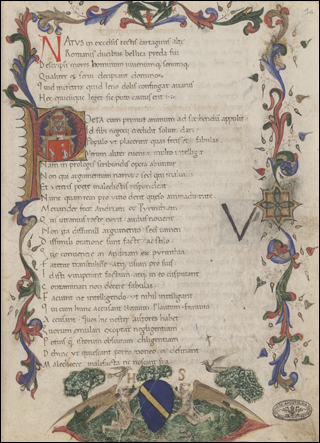 NATVS in excelsis tectis cartaginis alte
Romanis ducibus bellica preda fui
Descripsi mores hominum iuvenumq; senumq;
Qualiter et servi decipiant dominos
Quid meretrix quid leno dolis confingat avarus
Hec quicunque leget sic puto cautus erit
POETA cum primum animum ad scribendum appulit
Id sibi negoci credidit solum dari
Populo ut placerent quas fecisset fabulas
Verum aliter evenire multo intelligit
Nam in prologis scribundis opera abutitur
Non qui argumentum narret sed qui
Et veteris poete maledictis respondeat
Nunc quam rem vitio dent queso animadvertite
Menander fecit Andriam et Perinthiam
Qui utramvis recte norit ambas noverit
Non ita dissimili argumento sed tamen
Dissimili oratione sunt facte ac stilo
Que convenere in Andriam ex perinthia
Fatetur transtulisse atq; usum pro suis
Id isti vituperant factum atq; in eo disputant
Contaminari non decere fabulas
Faciunt ne intelligendo ut nihil intelligant
Qui cum hunc accusant Nevium Plautum Ennium
Accusant quos hic noster auctores habet
Quorum emulari exoptat negligentiam
Potius q; istorum obscuram diligentiam
Dehinc ut quiescant porro moneo et desinant
Maledicere malefacta ne noscant sua
V
H S